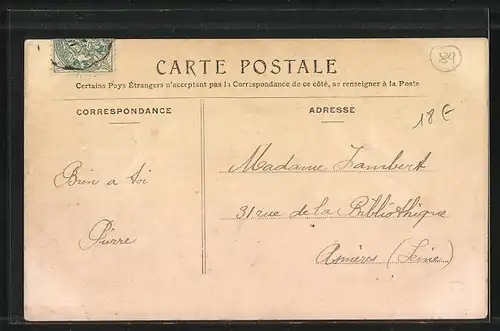 89
CARTE POSTALE
Certains Pays Étrangers n'acceptant pas la Correspondance de ce côté, se renseigner à la Poste
CORRESPONDANCE
ADRESSE
18 €
Madame Lambert
Bien a toi
31 rue de la Bibliothèque
Pierre
Asnières (Seine)